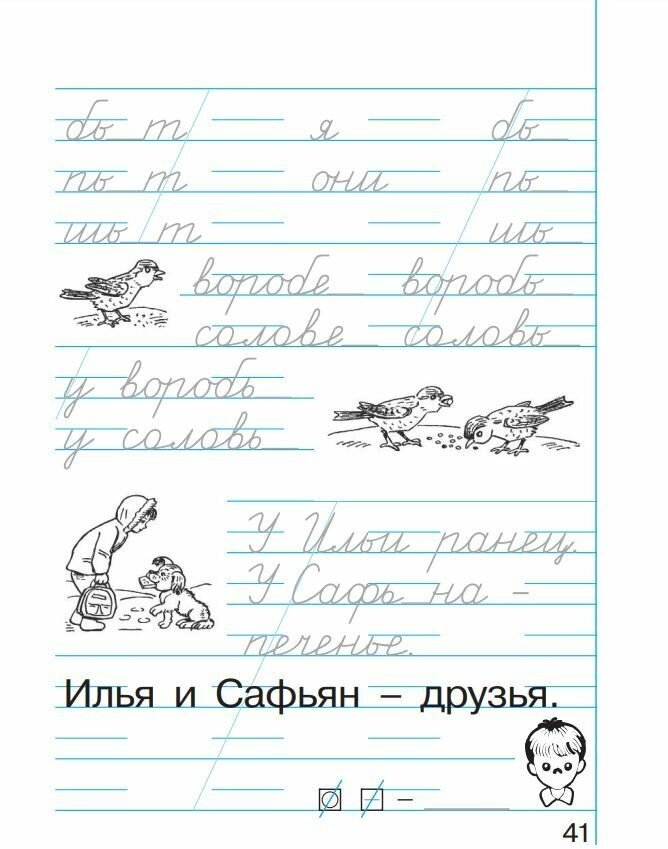 бь_т я бь_
пь_т они пь_
шь_т шь_
воробе_ воробь_
солове_ соловь_
у воробь_
у соловь_
У Ильи ранец.
У Сафь_на –
печенье.
Илья и Сафьян – друзья.
– ______
41